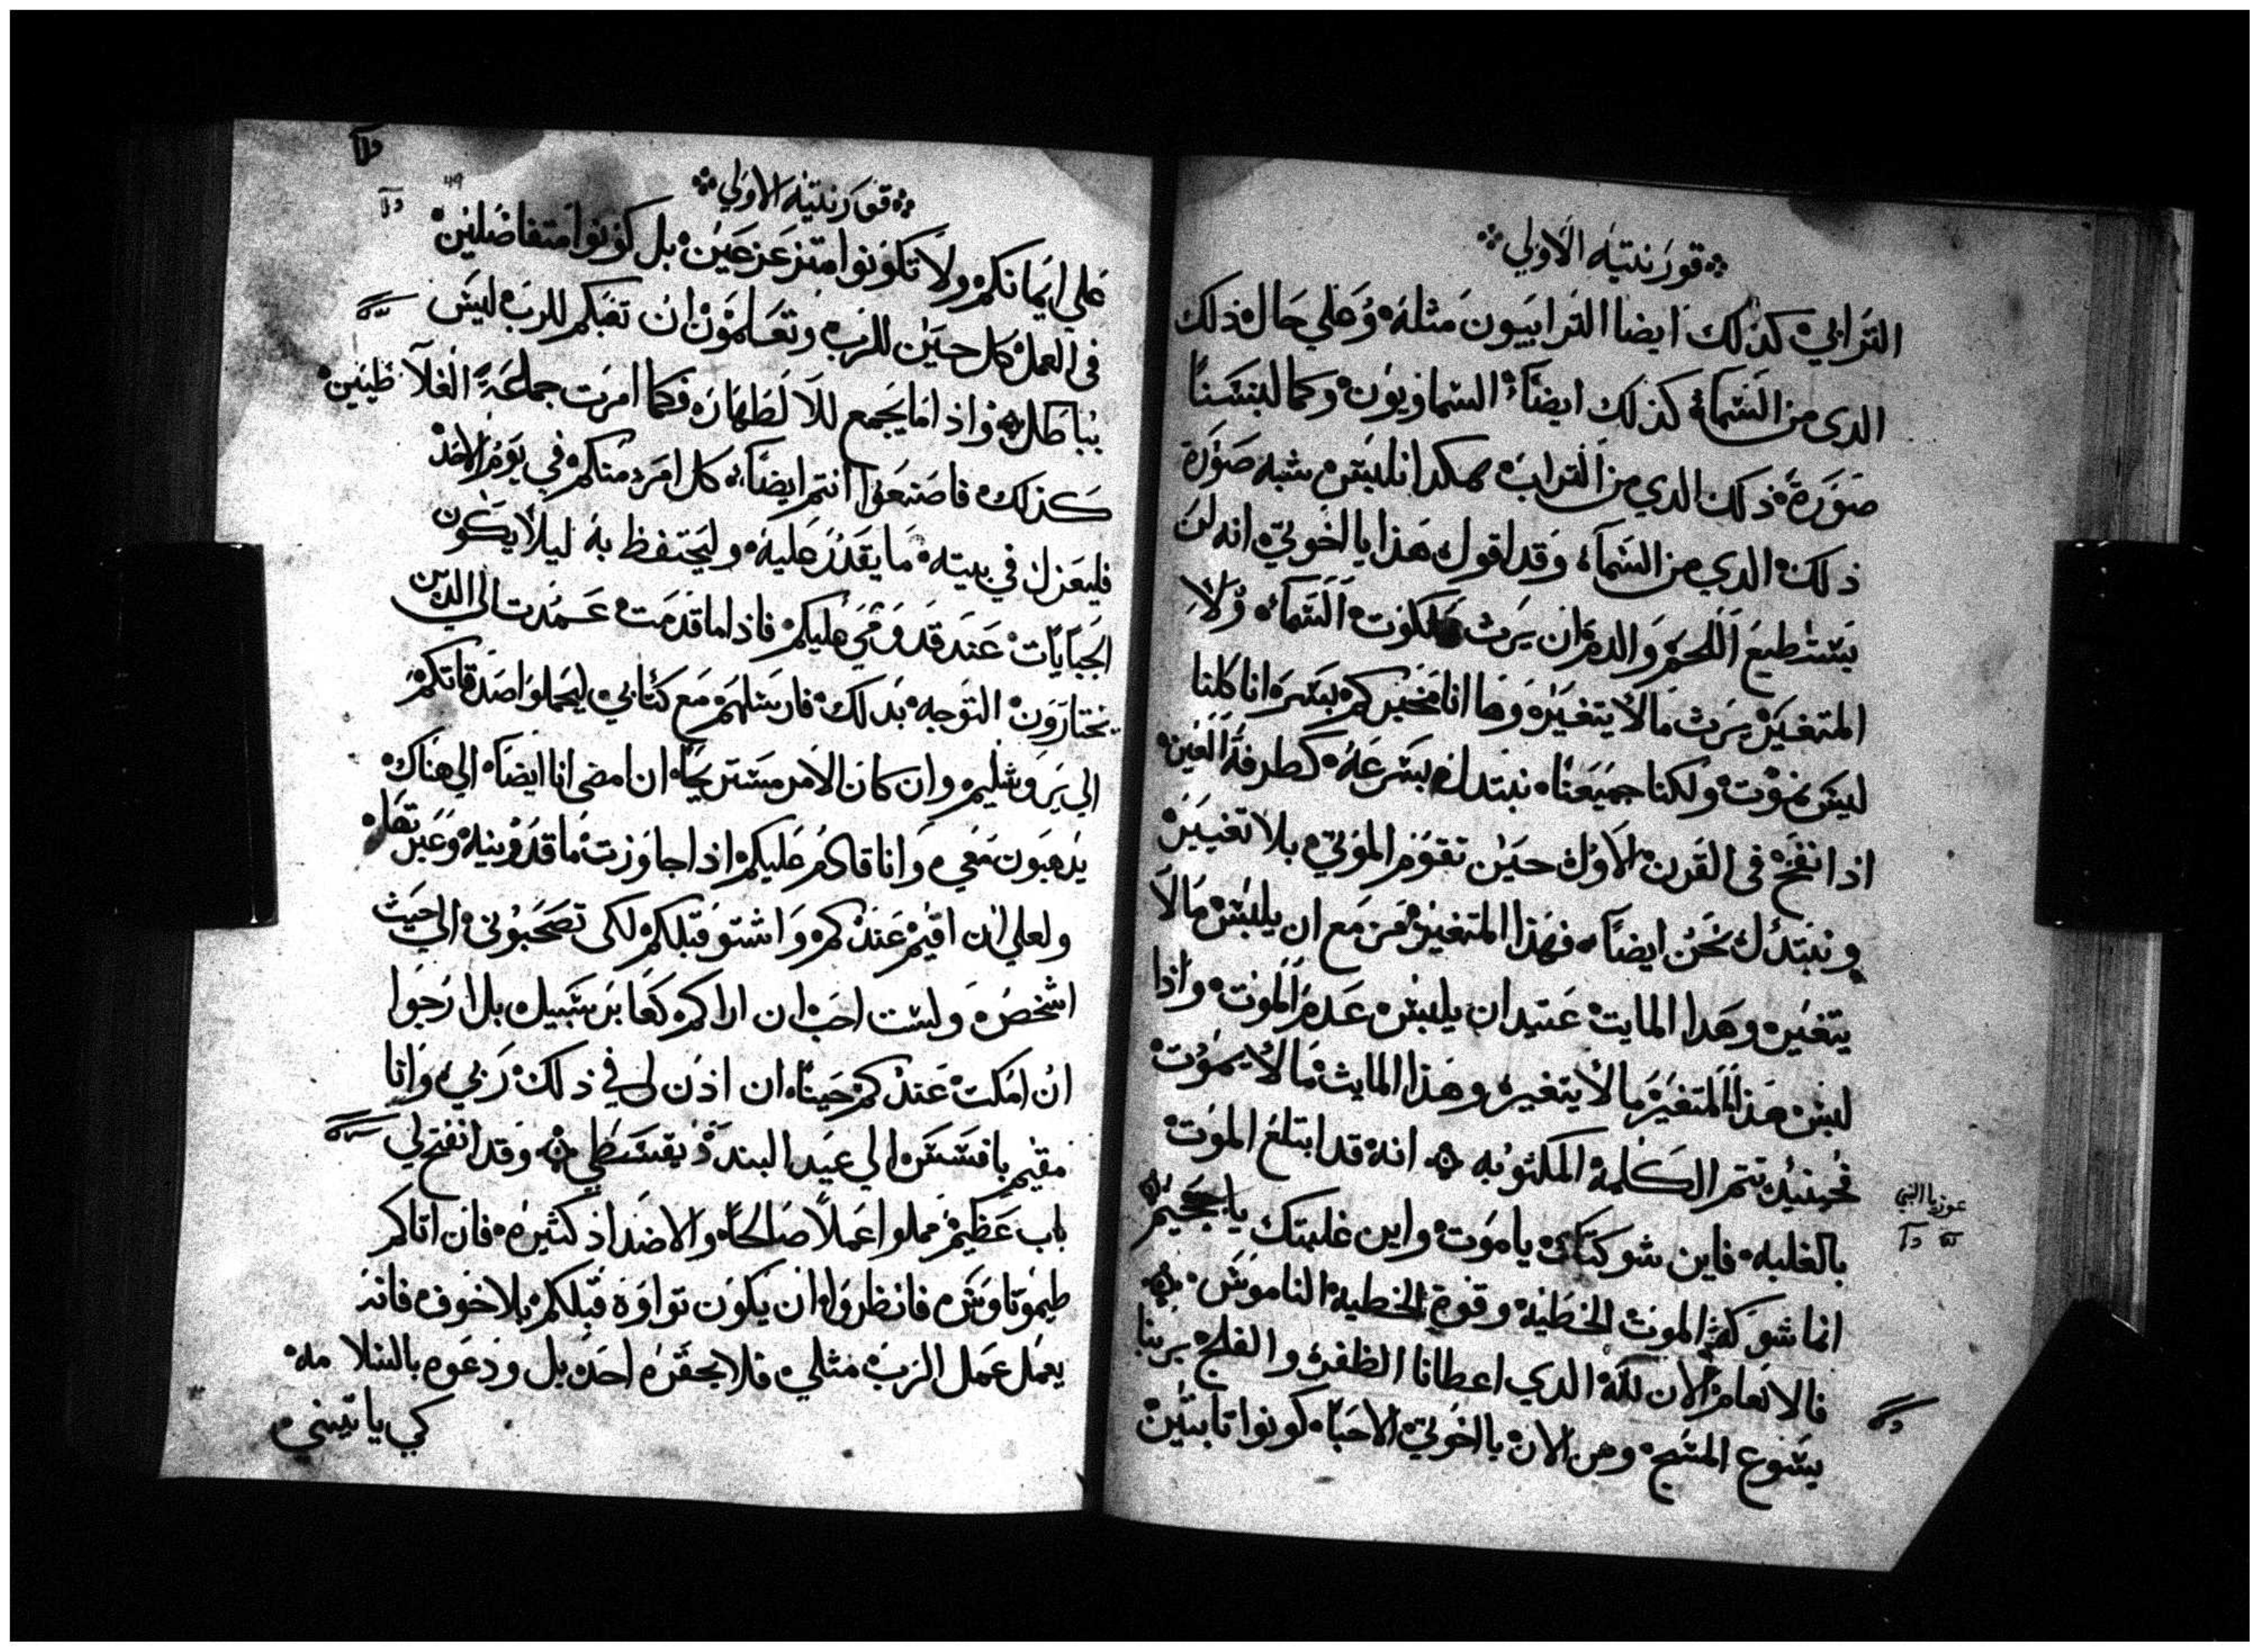 قورنتيه الاولي
الترابي كذلك ايضا الترابيون مثله وعلي حال ذلك
الدي من السماء كذلك ايضاً السماويون وكما لبسنا
صورة ذلك الدي من التراب هكدا نلبس شبه صورة
ذلك الدي من السماء وقد اقول هذا يا اخوتي انه لن
يستطيع اللحم والدم ان يرث ملكوت السماء ولا
المتغير يرث ما لا يتغير وها انا مخبركم بسر انا كلنا
ليس نموت ولكنا جميعنا نبتدل بسرعه كطرفة العين
اذا نفخ في القرن الاول حين تقوم الموتي بلا تغيير
ونبتدل نحن ايضاً فهذا المتغير مزمع ان يلبس ما لا
يتغير وهدا المايت عتيد ان يلبس عدم الموت واذا
لبس هذا المتغير ما لا يتغير وهذا المايت ما لا يموت
فحينيد تتم الكلمة المكتوبه انه قد ابتلع الموت
بالغلبه فاين شوكتك يا موت واين غلبتك يا جحيم
عوزيا النبي
انما شوكة الموت الخطيه وقوة الخطية الناموس
فالانعام الان لله الدي اعطانا الظفر والفلج بربنا
يسوع المسيح ومن الان يا اخوتي الاحبا كونوا تابتين
قورنتيه الاولي
علي ايمانكم ولا تكونوا متزعزعين بل كونوا متفاضلين
في العمل كل حين للرب وتعلمون ان تعبكم للرب ليس
بباطل واذ اما يجمع للاطهار فكما امرت جماعة الغلاطيين
كذلك فاصنعوا انتم ايضاً كل امرء منكم في يوم الاحد
فليعزل في بيته ما يقدر عليه وليحتفظ به ليلا يكون
الجبايات عند قدومي عليكم فاذا ما قدمت عمدت الي الدين
تختارون التوجه بدلك فارسلهم مع كتابي ليحملوا صدقاتكم
الي يروشليم وان كان الامر مستوجباً ان امضي انا ايضاً الي هناك
يدهبون معي وانا قادم عليكم اذا جاوزت ماقدونيه وعبرتها
ولعلي ان اقيم عندكم واشتو قبلكم لكي تصحبوني الي حيث
اشخص ولست احب ان اراكم كعابر سبيل بل ارجوا
ان امكت عندكم حيناً ان اذن لي في ذلك ربي وانا
مقيم بافسس الي عيد البندذيقسطي وقد انفتح لي
باب عظيم مملوا عملاً صالحاً والاضداد كثير فان اتاكم
طيموتاوس فانظروا ان يكون تواوه قبلكم بلا خوف فانه
يعمل عمل الرب مثلي فلا يحقره احد بل ودعوه بالسلامه
كي ياتيني